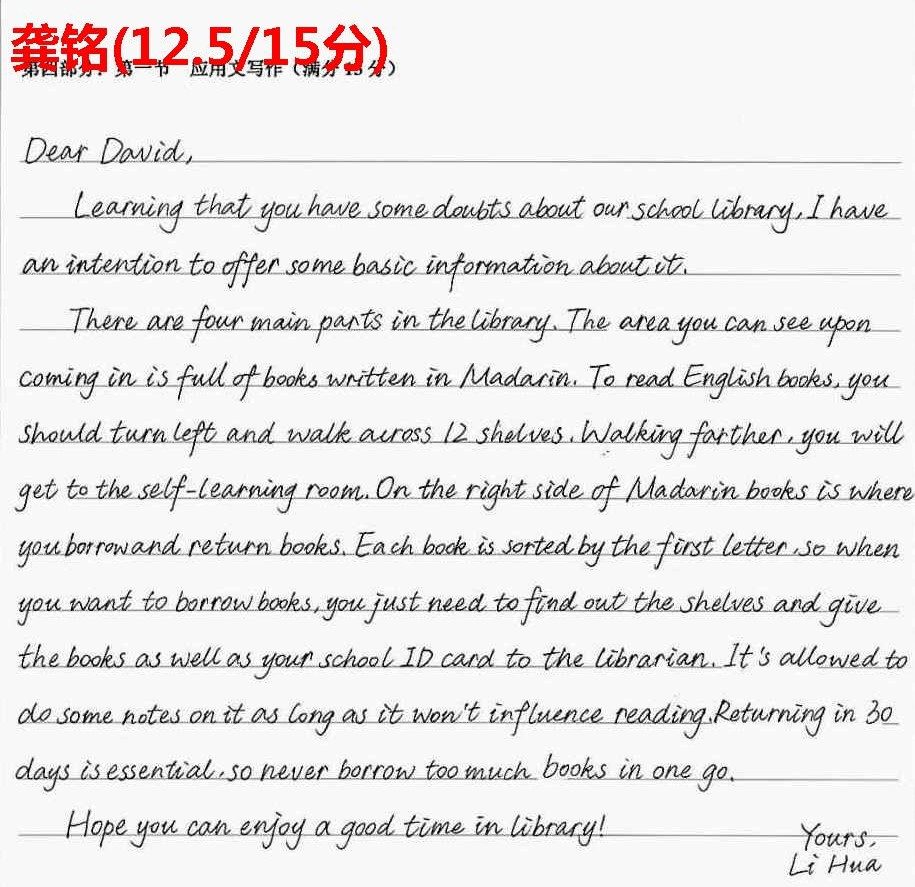 龚铭(12.5/15分)
第四部分：第一节 应用文写作（满分15分）
Dear David,
Learning that you have some doubts about our school library, I have
an intention to offer some basic information about it.
There are four main parts in the library. The area you can see upon
coming in is full of books written in Madarin. To read English books, you
should turn left and walk across 12 shelves. Walking farther, you will
get to the self-learning room. On the right side of Madarin books is where
you borrow and return books. Each book is sorted by the first letter, so when
you want to borrow books, you just need to find out the shelves and give
the books as well as your school ID card to the librarian. It's allowed to
do some notes on it as long as it won't influence reading. Returning in 30
days is essential, so never borrow too much books in one go.
Hope you can enjoy a good time in library!
Yours,
Li Hua